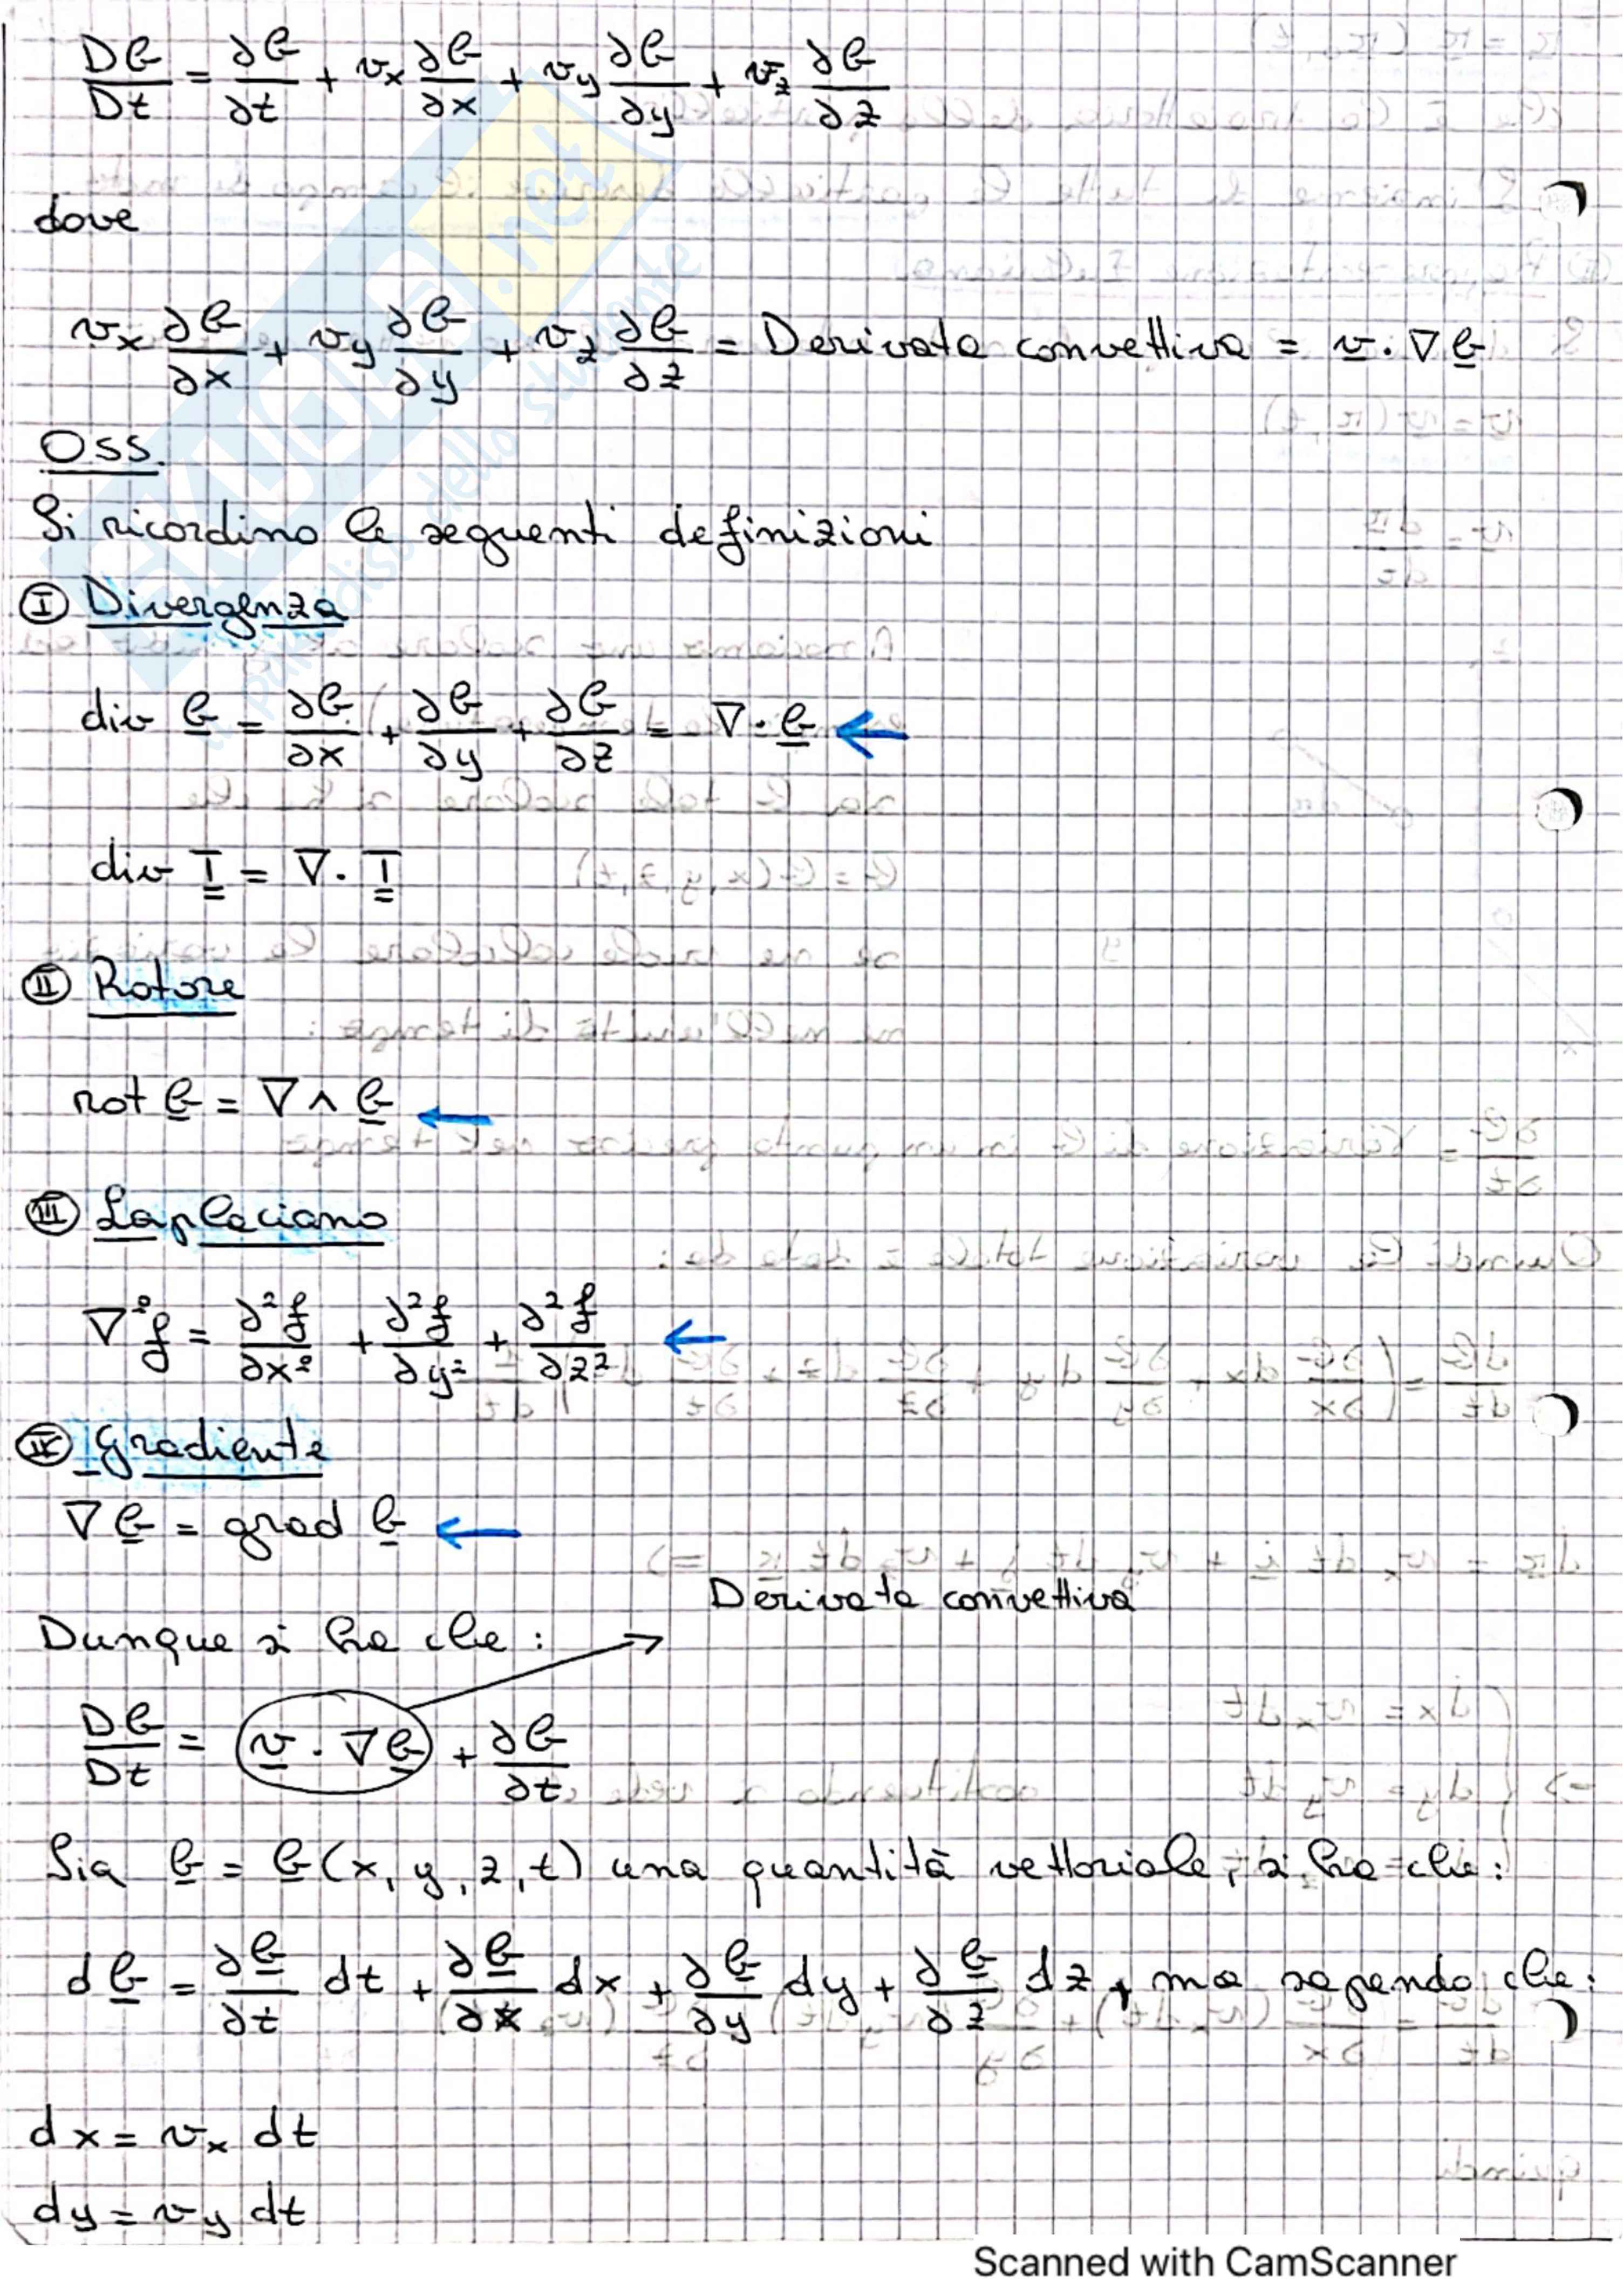 Db/Dt = ∂b/∂t + vx ∂b/∂x + vy ∂b/∂y + vz ∂b/∂z
dove
vx ∂b/∂x + vy ∂b/∂y + vz ∂b/∂z = Derivata convettiva = v · ∇b
Oss.
Si ricordino le seguenti definizioni
I Divergenza
div b = ∂b/∂x + ∂b/∂y + ∂b/∂z = ∇ · b ←
div T = ∇ · T
II Rotore
rot b = ∇ ∧ b ←
III Laplaciano
∇²f = ∂²f/∂x² + ∂²f/∂y² + ∂²f/∂z² ←
IV Gradiente
∇b = grad b ←
Derivata convettiva
Dunque si ha che : →
Db/Dt = v · ∇b + ∂b/∂t
Sia b = b(x, y, z, t) una quantità vettoriale, si ha che:
db = ∂b/∂t dt + ∂b/∂x dx + ∂b/∂y dy + ∂b/∂z dz, ma sapendo che:
dx = vx dt
dy = vy dt
Scanned with CamScanner